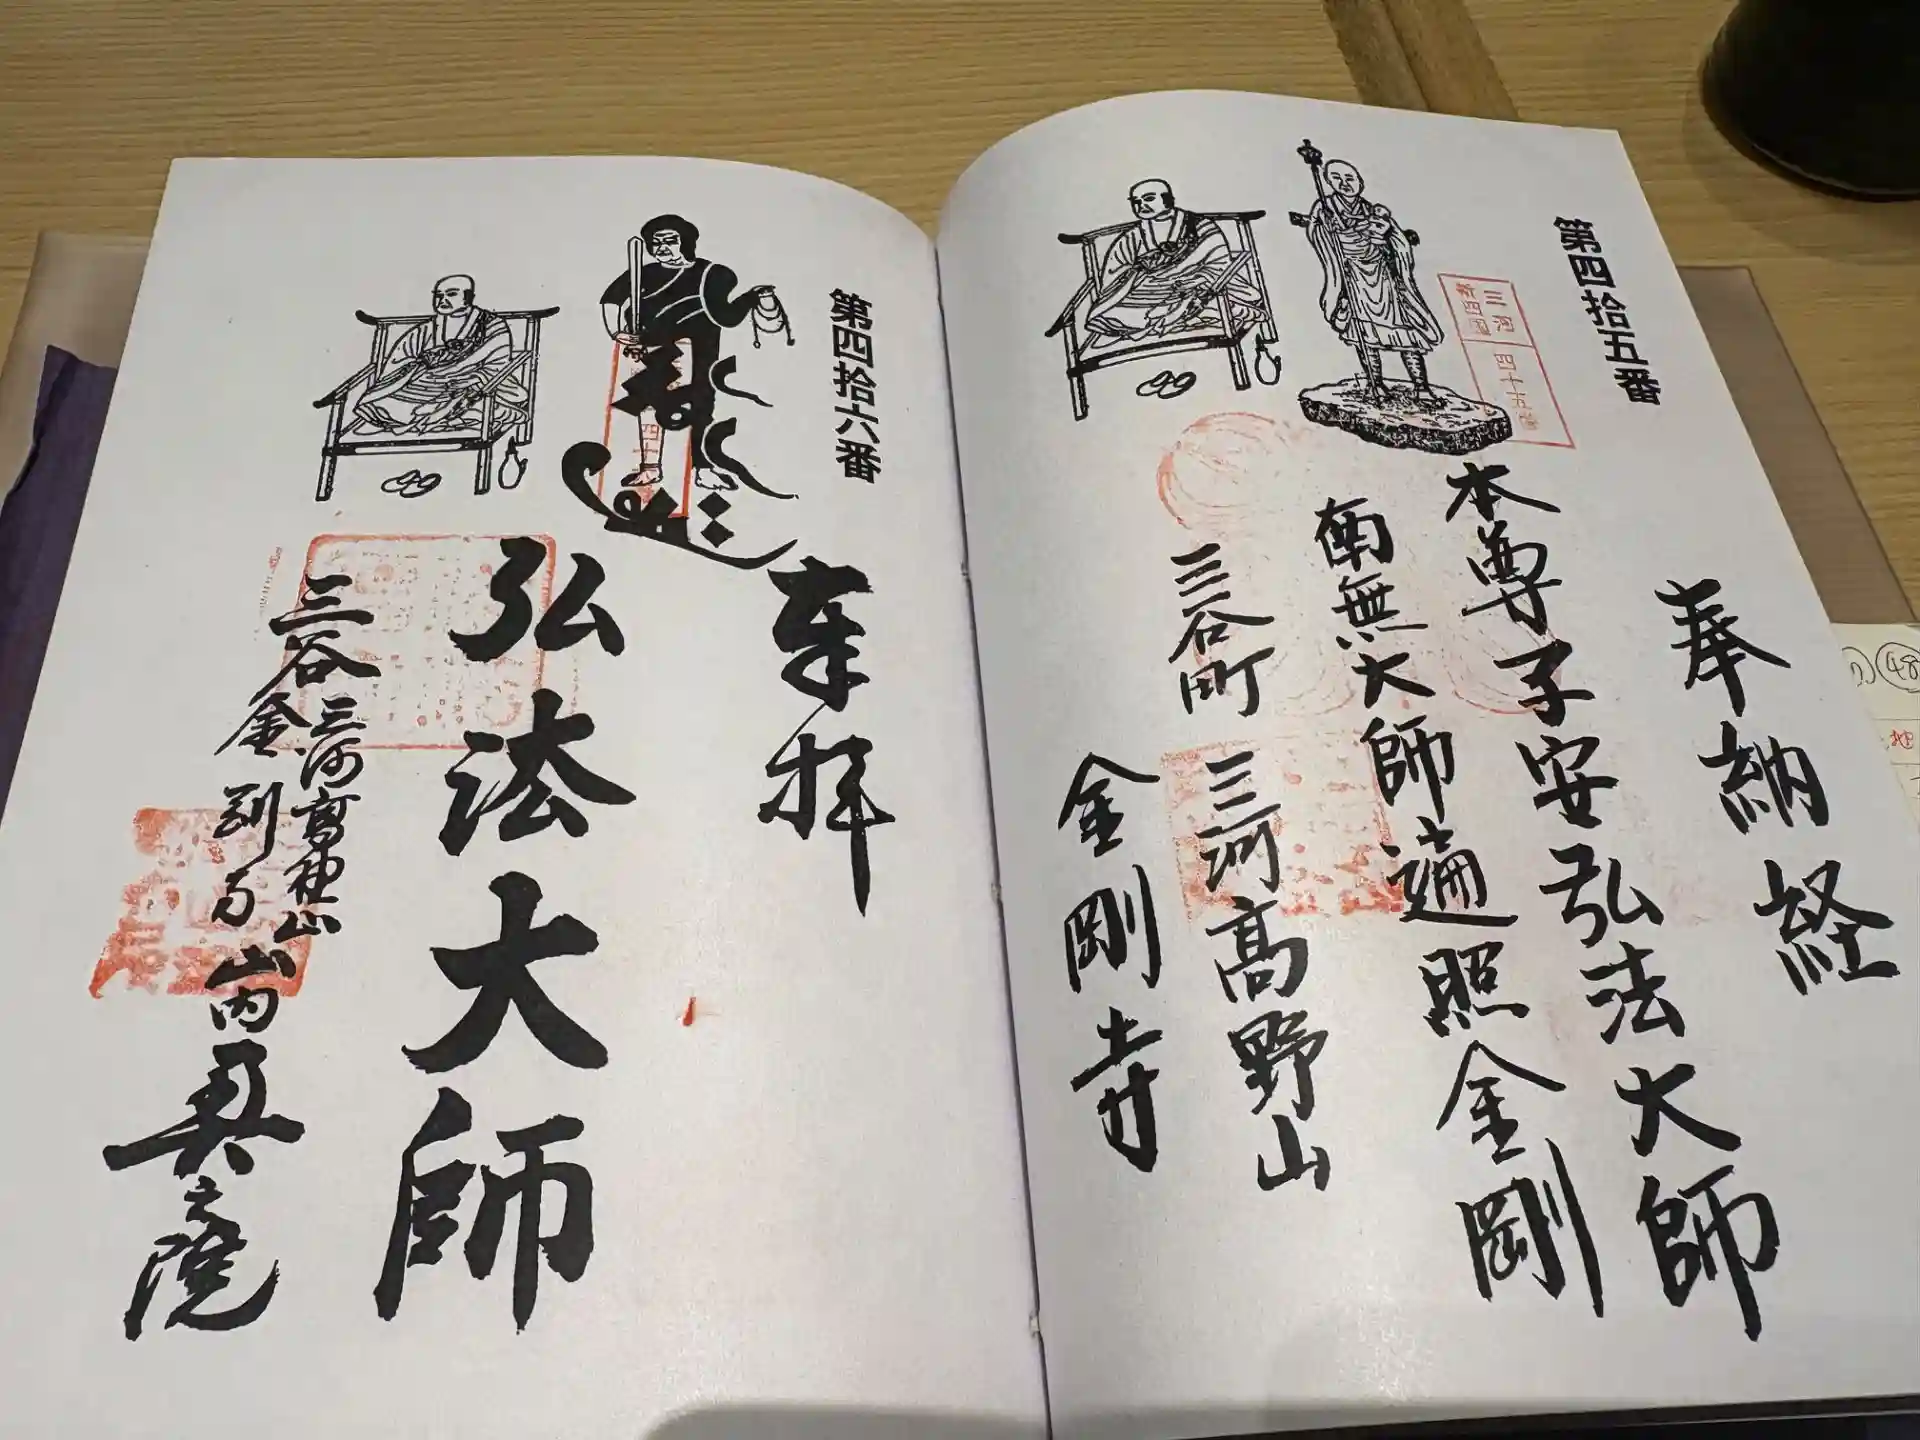 第四拾五番
三河
新四国
四十五番
奉納経
本尊子安弘法大師
南無大師遍照金剛
三谷町 三河高野山
金剛寺
第四拾六番
四十
奉拝
弘法大師
三谷
三河高野山
金剛寺
山内
奥之院
48